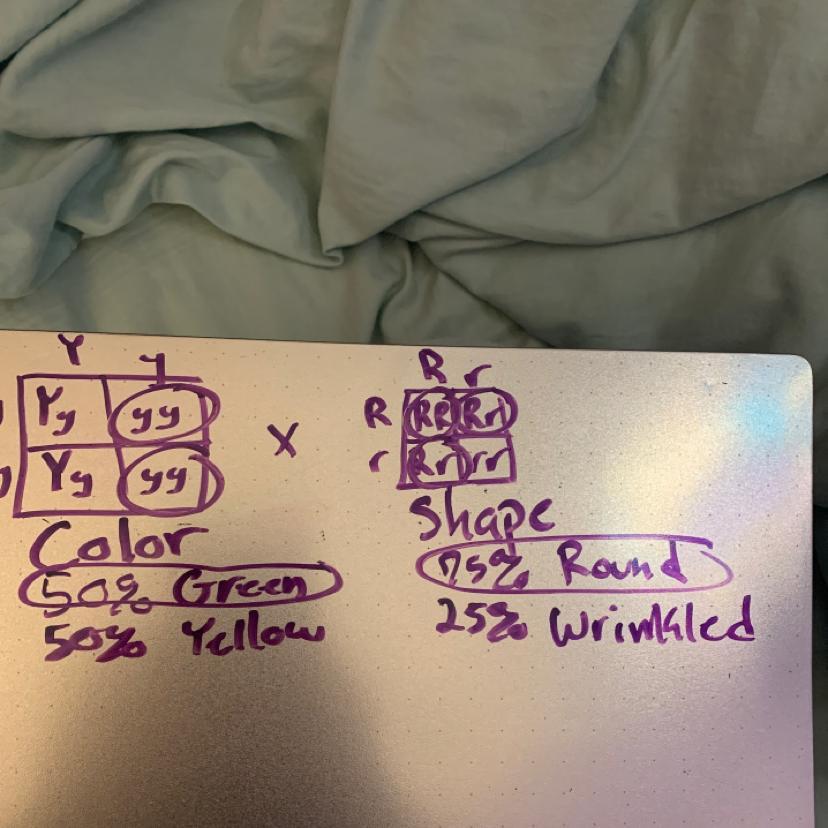 Y y
Yy yy
Yy yy
X
R r
R RR Rr
r Rr rr
Color
50% Green
50% Yellow
Shape
75% Round
25% Wrinkled